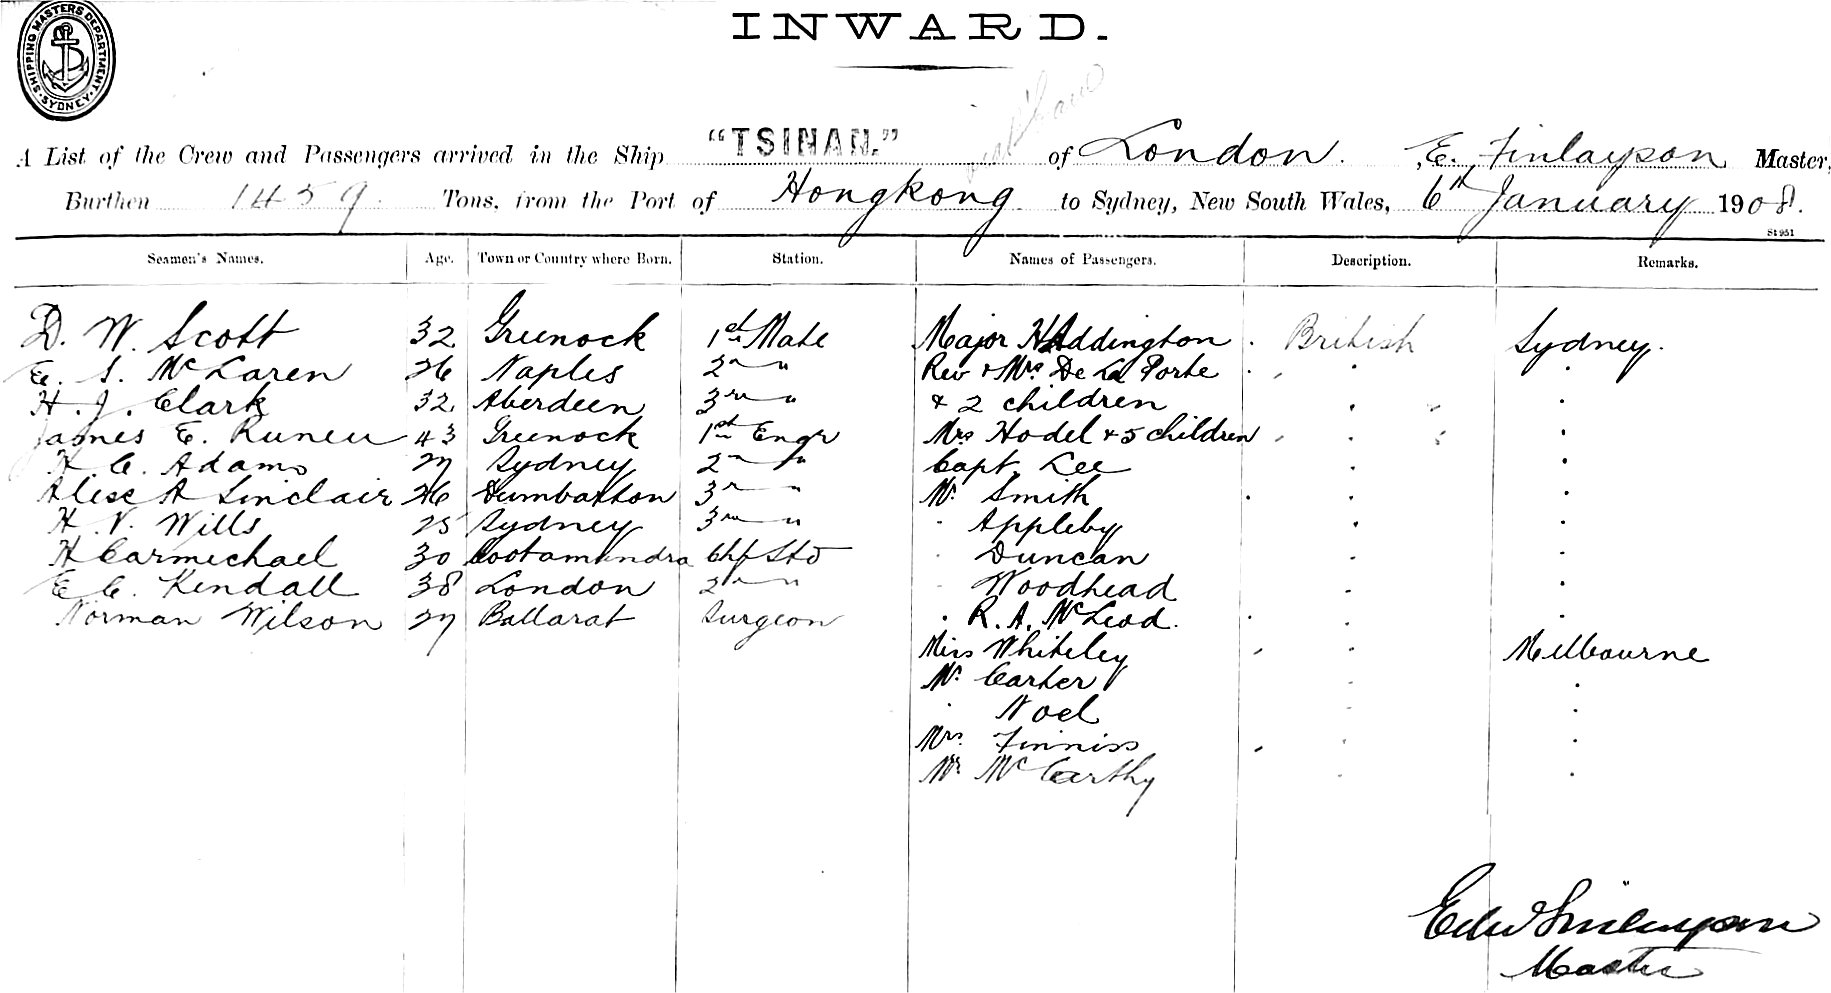 SHIPPING MASTERS DEPARTMENT. SYDNEY
INWARD.
A List of the Crew and Passengers arrived in the Ship "TSINAN." of London. E. Finlayson Master,
Burthen 1459 Tons, from the Port of Hongkong to Sydney, New South Wales, 6th January 1908.
St 951
Seamen's Names. Age. Town or Country where Born. Station. Names of Passengers. Description. Remarks.
D. W. Scott 32 Greenock 1st Mate Major H Addington . British Sydney.
E. S. McLaren 26 Naples 2nd " Rev & Mrs De La Porte
H. J. Clark 32 Aberdeen 3rd " & 2 children
James E. 43 Greenock 1st Engr Mrs Hodel & 5 children
H C. Adams 27 Sydney 2nd " Capt. Lee
Alex A Sinclair 26 Dumbarton 3rd " Mr. Smith
H. V. Wills 25 Sydney 3rd " " Appleby
H Carmichael 30 Cootamundra Chf Std " Duncan
E C. Kendall 38 London 2nd " " Woodhead
Norman Wilson 27 Ballarat Surgeon " R. A. McLeod.
Miss Whiteley Melbourne
Mr. Carter
" Noel
Mrs. Finniss
Mr McCarthy
Edw Finlayson
Master